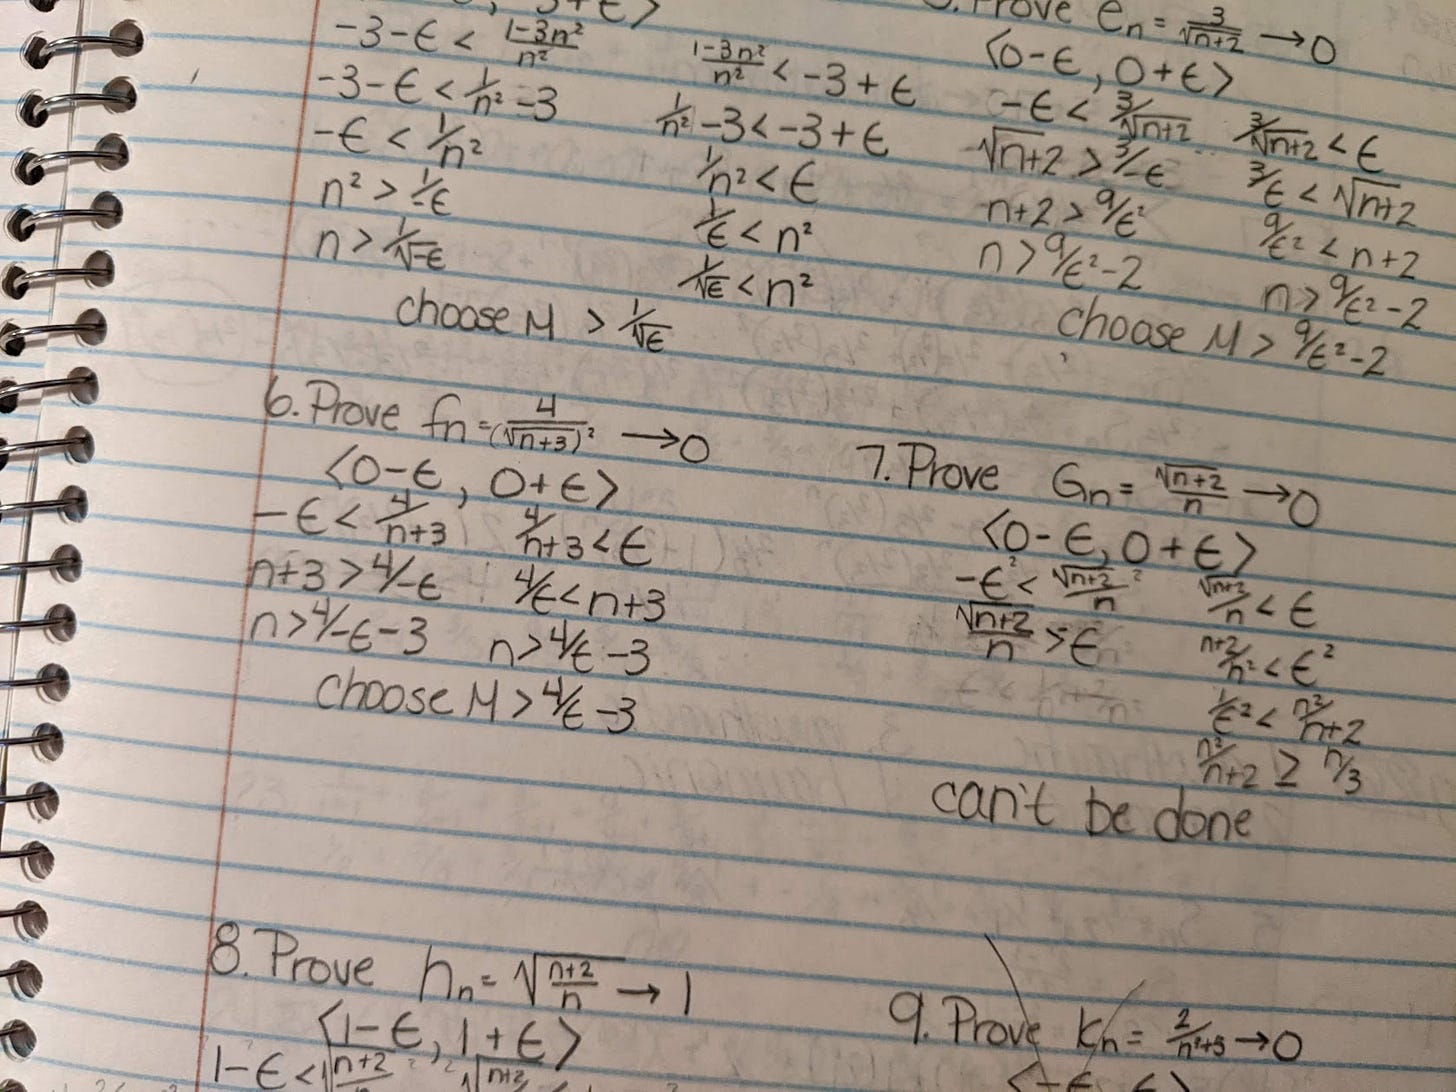 , 3+ε⟩
-3-ε < (1-3n²)/n²
(1-3n²)/n² < -3+ε
-3-ε < 1/n² -3
1/n² -3 < -3+ε
-ε < 1/n²
1/n² < ε
n² > 1/-ε
1/ε < n²
n > 1/√-ε
1/√ε < n²
choose M > 1/√ε
Prove en = 3/√n+2 → 0
⟨0-ε, 0+ε⟩
-ε < 3/√n+2
3/√n+2 < ε
√n+2 > 3/-ε
3/ε < √n+2
n+2 > 9/ε²
9/ε² < n+2
n > 9/ε² -2
n > 9/ε² -2
choose M > 9/ε² -2
6. Prove fn = 4/(√n+3)² → 0
⟨0-ε, 0+ε⟩
-ε < 4/n+3
4/n+3 < ε
n+3 > 4/-ε
4/ε < n+3
n > 4/-ε -3
n > 4/ε -3
choose M > 4/ε -3
7. Prove Gn = √n+2/n → 0
⟨0-ε, 0+ε⟩
-ε² < √n+2/n ²
√n+2/n < ε
√n+2/n > ε
n+2/n² < ε²
1/ε² < n²/n+2
n²/n+2 ≥ n/3
can't be done
8. Prove hn = √(n+2/n) → 1
⟨1-ε, 1+ε⟩
1-ε < √n+2/n ²
√n+2
9. Prove Kn = 2/n²+5 → 0